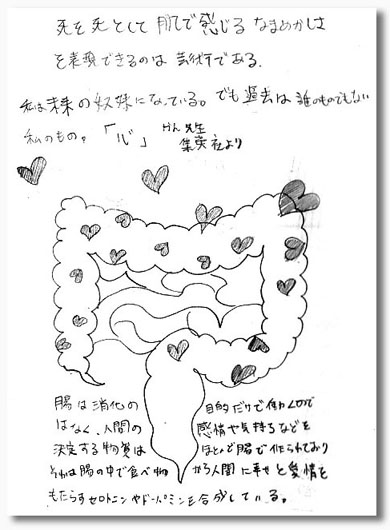 死を死として肌で感じるなまめかしさ
を表現できるのは芸術である。
私は未来の奴隷になっている。でも過去は誰のものでもない
私のもの。「心」 けん先生
集英社より
腸は消化の 目的だけで働くので
はなく、人間の 感情や気持ちなどを
決定する物質は ほとんど腸で作られており
それは腸の中で食べ物 から人間に幸せと愛情を
もたらすセロトニンやドーパミンを合成している。